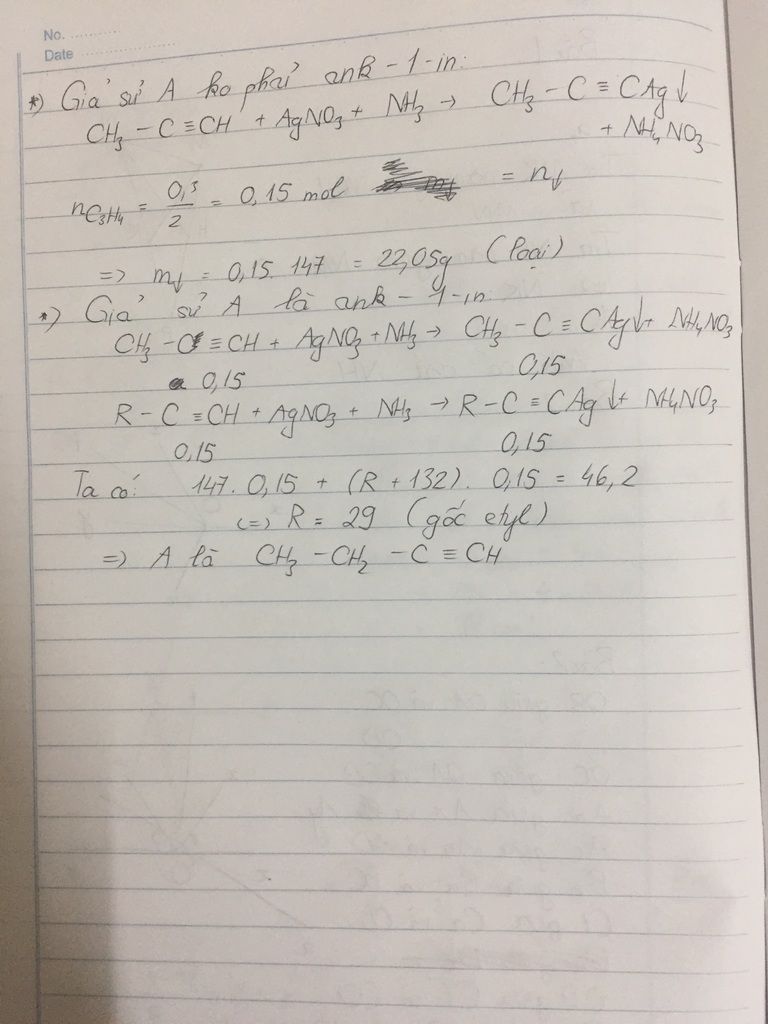 No. ............
Date ......................
*) Giả sử A ko phải ank - 1 - in:
CH₃ - C ≡ CH + AgNO₃ + NH₃ → CH₃ - C ≡ CAg↓
+ NH₄NO₃
nC₃H₄ = 0,3/2 = 0,15 mol = n↓
=> m↓ = 0,15. 147 = 22,05g (loại)
*) Giả sử A là ank - 1 - in:
CH₃ - C ≡ CH + AgNO₃ + NH₃ → CH₃ - C ≡ CAg↓ + NH₄NO₃
0,15 0,15
R - C ≡ CH + AgNO₃ + NH₃ → R - C ≡ CAg↓ + NH₄NO₃
0,15 0,15
Ta có: 147. 0,15 + (R + 132). 0,15 = 46,2
<=> R = 29 (gốc etyl)
=> A là CH₃ - CH₂ - C ≡ CH